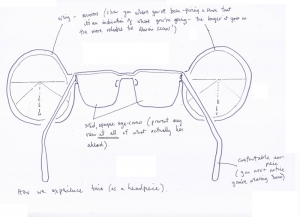 wing-mirrors (show you where you've been - giving a sense that
it's an indication of where you're going - the longer it goes on
the more reliable the illusion seems!)
solid, opaque eye-covers (prevent any
view at all of what actually lies
ahead).
comfortable ear-
piece
(you don't notice
you're wearing them)
How we experience time (as a headpiece).